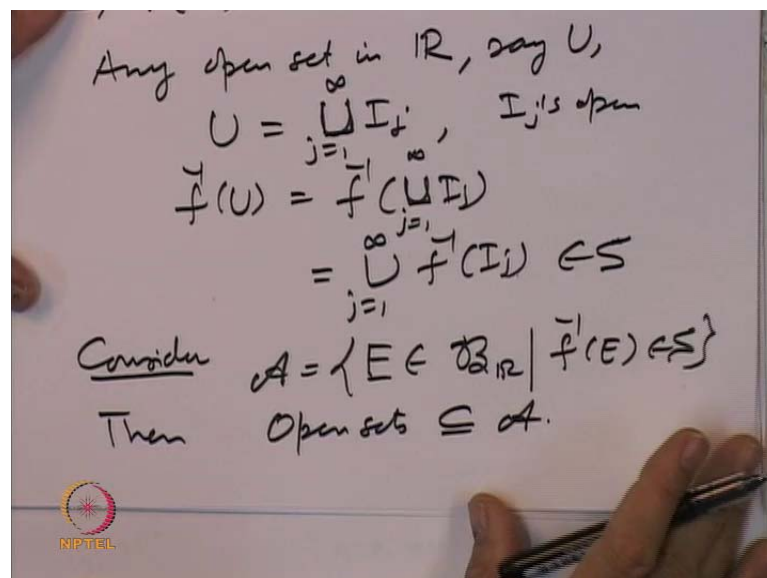 Any open set in IR, say U,
U = ⊔_{j=1}^{∞} I_j, I_j's open
f^{-1}(U) = f^{-1}(⊔_{j=1}^{∞} I_j)
= ⋃_{j=1}^{∞} f^{-1}(I_j) ∈ S
Consider 𝒜 = {E ∈ ℬ_{IR} | f^{-1}(E) ∈ S}
Then Open sets ⊆ 𝒜.
NPTEL